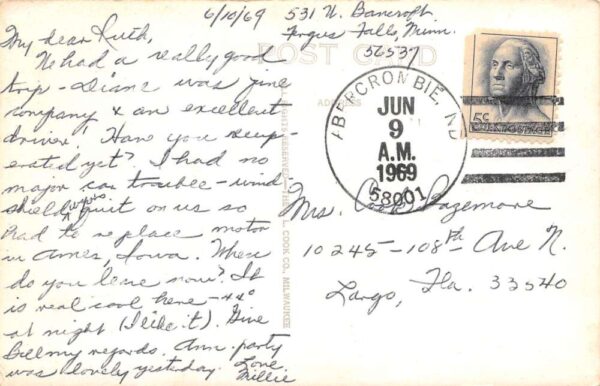 6/10/69
531 N. Bancroft
Fergus Falls, Minn.
56537
POST CARD
ADDRESS
My dear Ruth,
We had a really good
trip - Diane was fine
company & an excellent
driver! Have you recup-
erated yet? I had no
major car trouble - wind
shield wipers quit on us so
had to replace motor
in Ames, Iowa. When
do you leave now? It
is real cool here - 44°
at night (I like it). Give
Bill my regards. Ann. party
was lovely yesterday. Love,
Millie
ABERCROMBIE, ND
JUN
9
A.M.
1969
58001
5c
U.S. POSTAGE
Mrs.
10245-108th Ave N.
Largo, Fla. 33540
RIGHTS RESERVED - THE L. L. COOK CO., MILWAUKEE